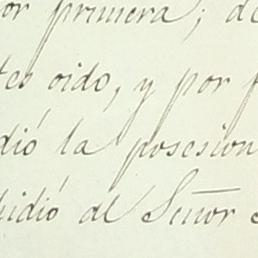 or primera; de
tes oido, y por p
dió la posesion
pidió al Señor